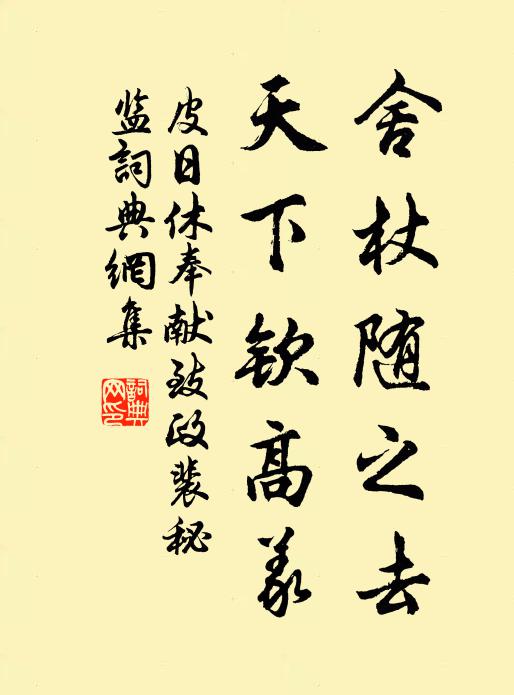 舍杖随之去
天下欽高义
皮日休奉献致政裴秘
监詞典網集
詞典网印